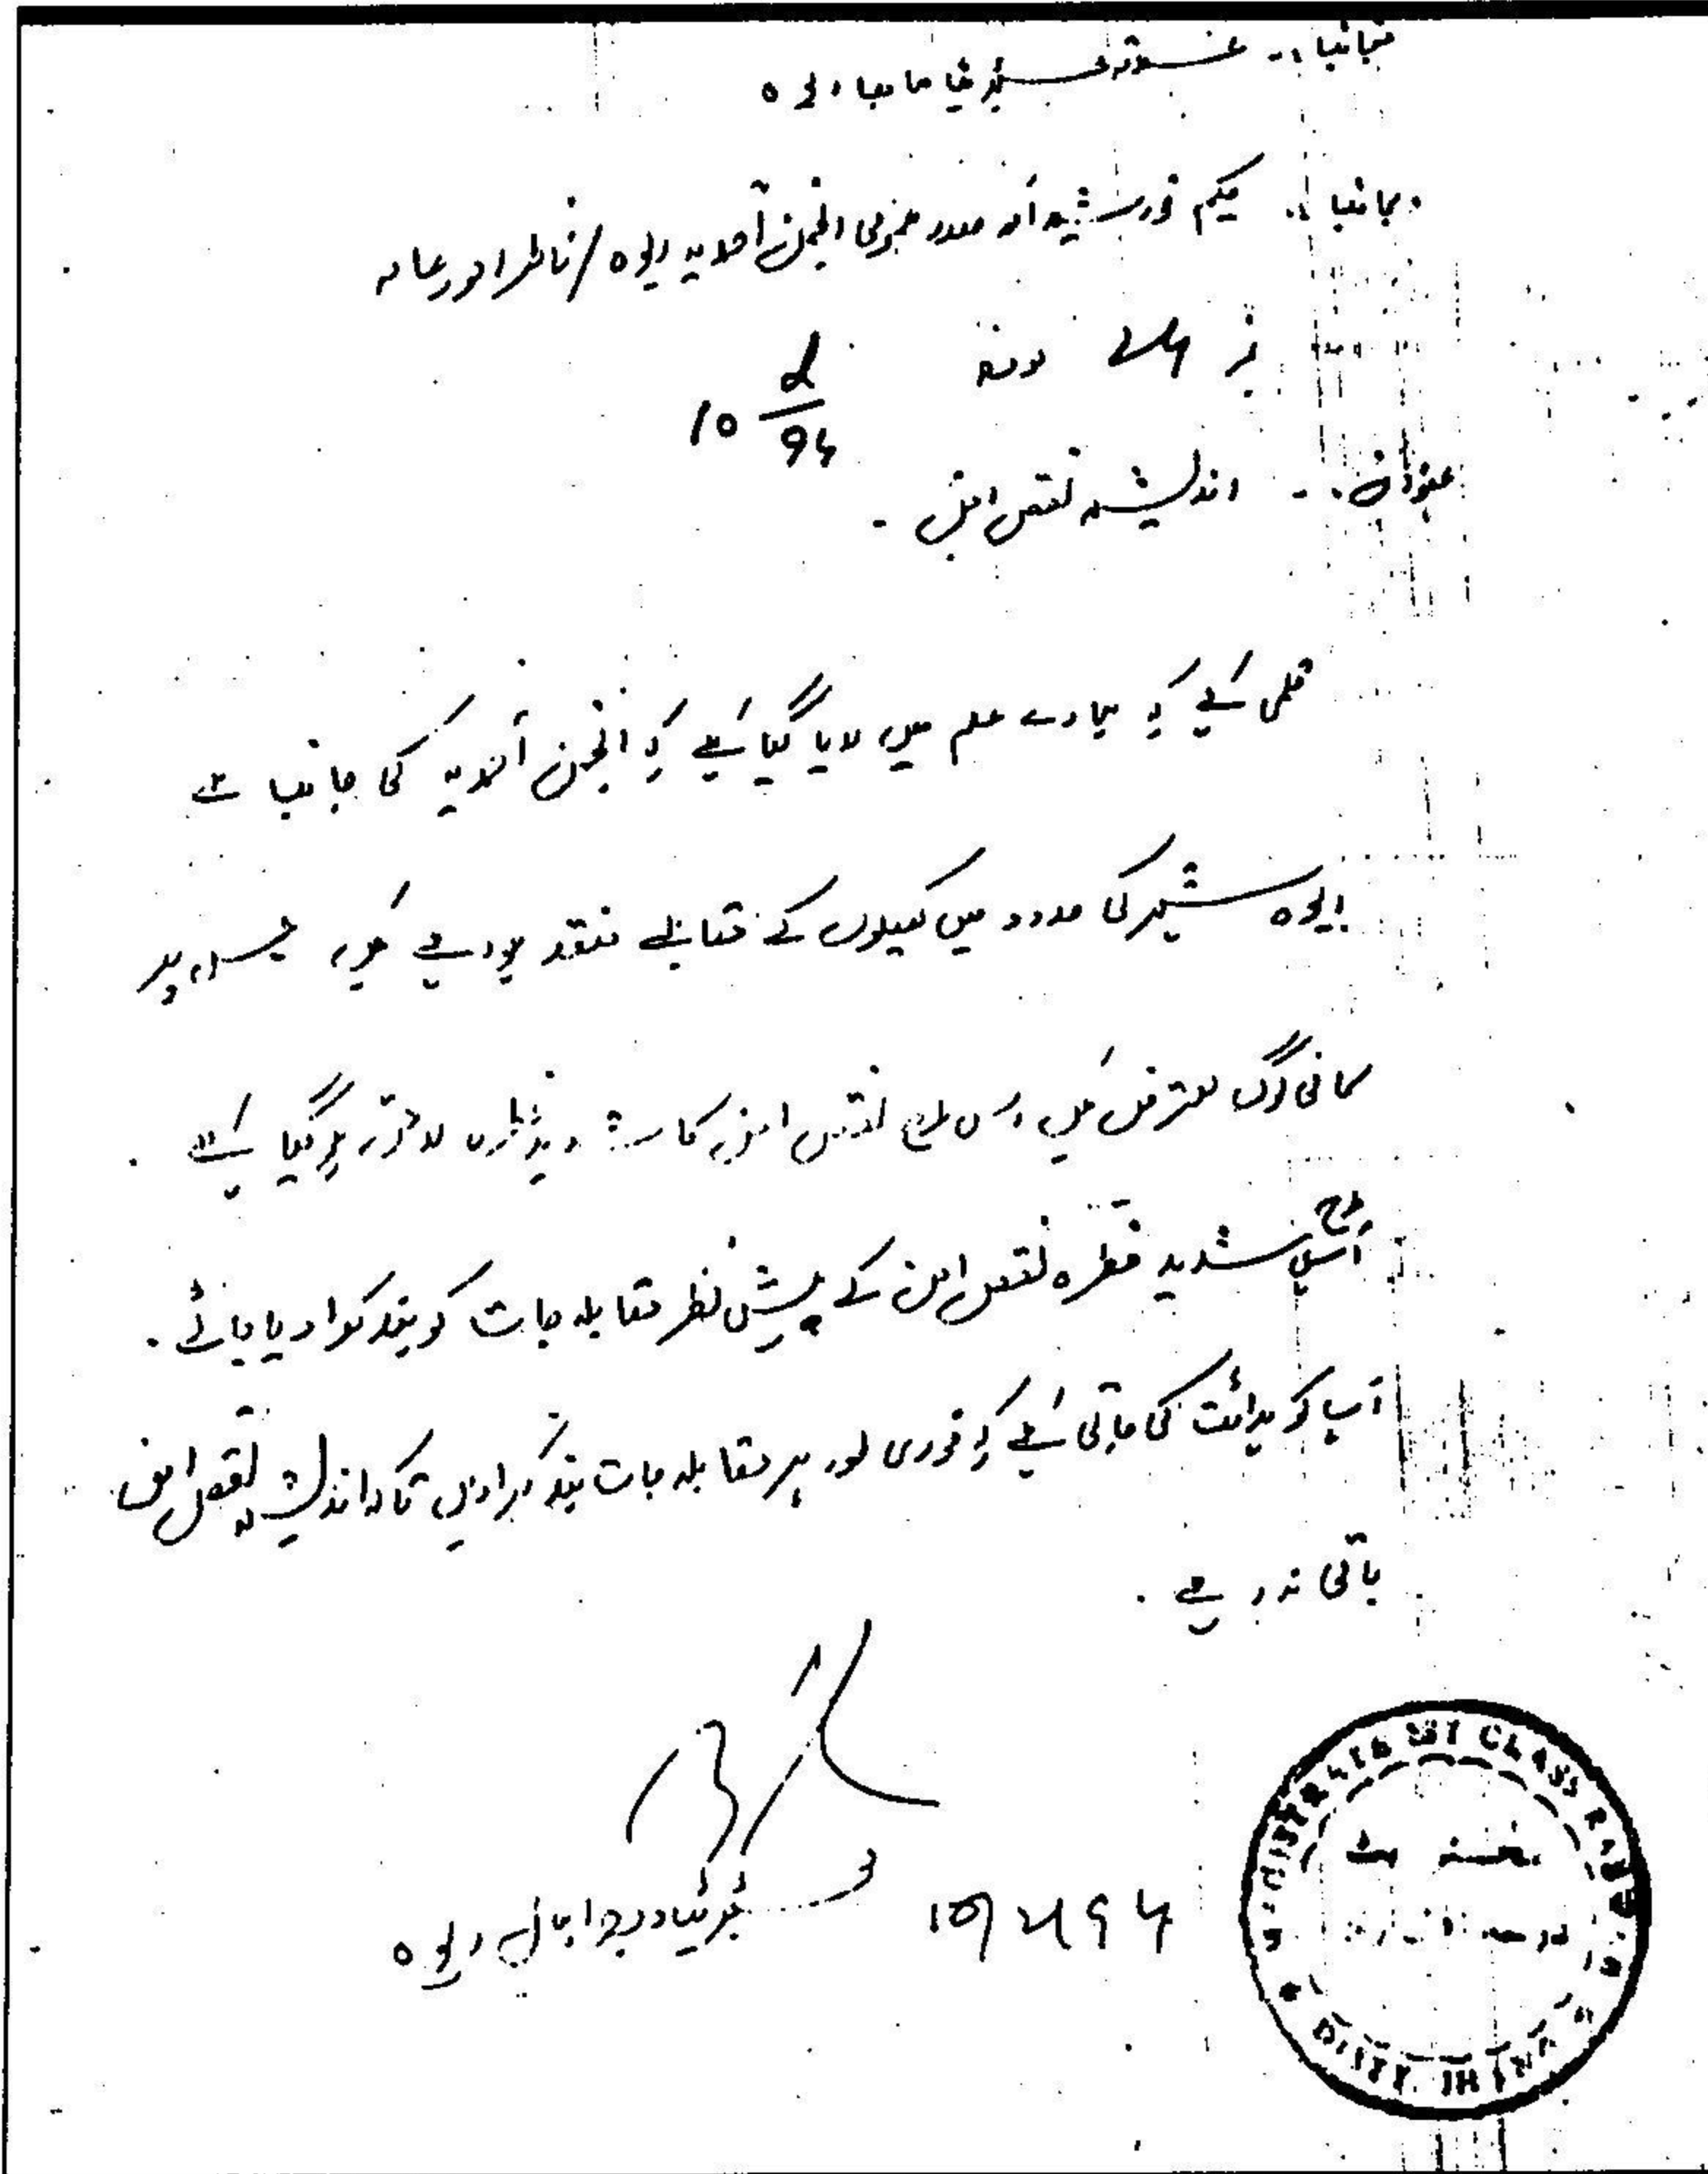 منجانب :-
بجانب :- حکیم خورشید احمد صدر عمومی انجمن احمدیہ ربوہ / ناظر امور عامہ
نمبر مورخہ 10 94
عنوان :- اندیشہ نقص امن -
ہے کہ ہمارے علم میں لایا گیا ہے کہ انجمن احمدیہ کی جانب سے
ربوہ شہر کی حدود میں کھیلوں کے مقابلے منعقد ہو رہے ہیں جس پر
کافی لوگ معترض ہیں اس طرح نقص امن کا شدید خطرہ لاحق ہو گیا ہے ۔
اس طرح شدید خطرہ نقص امن کے پیش نظر مقابلہ جات کو بند کروا دیا جائے ۔
آپ کو ہدائت کی جاتی ہے کہ فوری طور پر مقابلہ جات بند کرا دیں تاکہ اندیشہ نقص امن
باقی نہ رہے ۔
ربوہ
MAGISTRATE 1ST CLASS RABWAH
DISTT JHANG